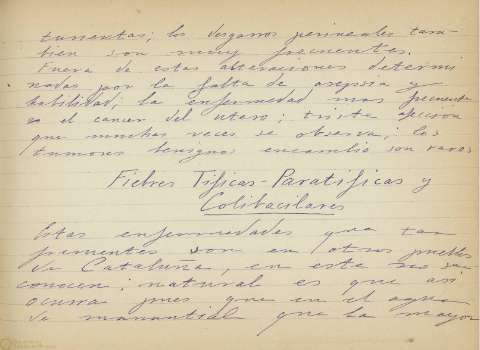 los desgarros perineales tam-
bien son muy frecuentes.
Fuera de estas alteraciones determi
nadas por la falta de asepsia y
habilidad; la enfermedad mas frecuente
es el cancer del utero; triste afeccion
que muchas veces se observa; los
tumores benignos encambio son raros
Fiebres Tificas-Paratificas y
Colibacilares
Estas enfermedades que tan
frecuentes son en otros pueblos
de Cataluña, en este no se
conocen; natural es que asi
ocurra pues que en el agua
de manantial que la mayor